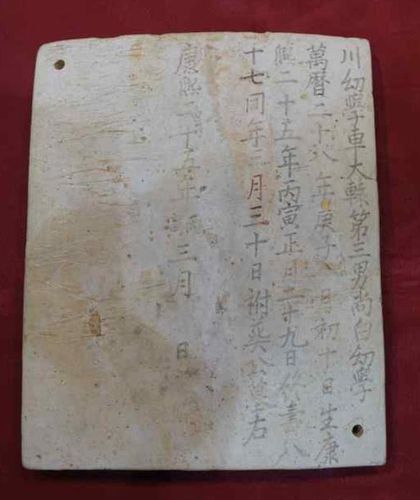 川幼學車大第三男尚白幼學
萬暦二十八年庚子月初十日生康
熙二十五年丙寅正月二十九日終壽八
十七同年月三十日祔葬公墓右
康熙二十五年三月日